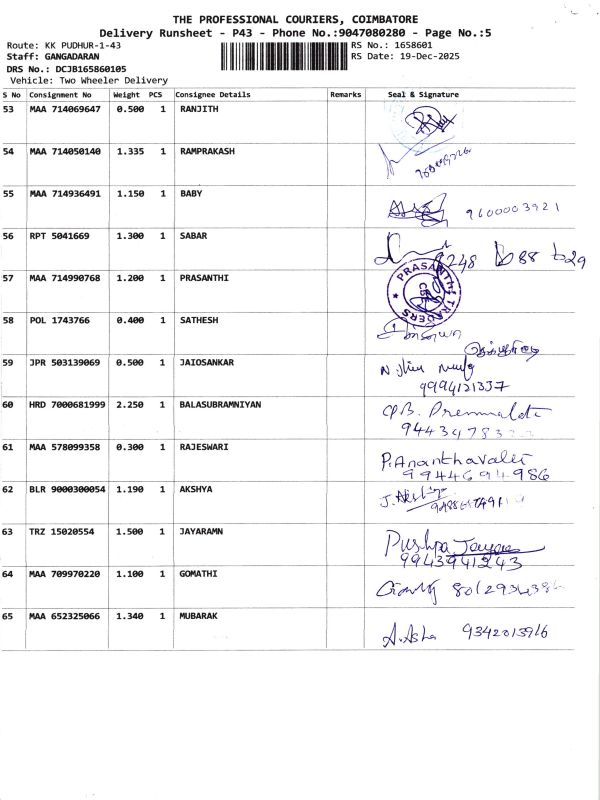 THE PROFESSIONAL COURIERS, COIMBATORE
Delivery Runsheet - P43 - Phone No.:9047080280 - Page No.:5
Route: KK PUDHUR-1-43 RS No.: 1658601
Staff: GANGADARAN RS Date: 19-Dec-2025
DRS No.: DCJB165860105
Vehicle: Two Wheeler Delivery
S No Consignment No Weight PCS Consignee Details Remarks Seal & Signature
53 MAA 714069647 0.500 1 RANJITH
54 MAA 714050140 1.335 1 RAMPRAKASH
55 MAA 714936491 1.150 1 BABY
9600003921
56 RPT 5041669 1.300 1 SABAR
57 MAA 714990768 1.200 1 PRASANTHI
PRASANTHI TRADERS
CBE
58 POL 1743766 0.400 1 SATHESH
59 JPR 503139069 0.500 1 JAIOSANKAR
9994121337
60 HRD 7000681999 2.250 1 BALASUBRAMNIYAN
61 MAA 578099358 0.300 1 RAJESWARI
P.Ananthavalli
9944694986
62 BLR 9000300054 1.190 1 AKSHYA
63 TRZ 15020554 1.500 1 JAYARAMN
Pushpa
9943941243
64 MAA 709970220 1.100 1 GOMATHI
65 MAA 652325066 1.340 1 MUBARAK
A.Asha 9342013916